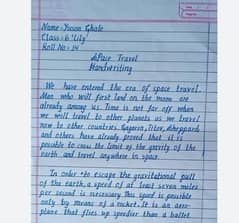 Name - Yuson Ghale
Class : 6 'Lily'
Roll No : 14
Space Travel
Handwriting
We have entered the era of space travel.
Men who will first land on the moon are
already among us. Time is not far off when
we will travel to other planets as we travel
now to other countries. Gagarin, Titov, Sheppard
and others have already proved that it is
possible to cross the limit of the gravity of the
earth and travel anywhere in space.
In order to escape the gravitational pull
of the earth, a speed of at least seven miles
per second is necessary. This speed is possible
only by means of a rocket. It is an aero-
plane that flies up speedier than a bullet